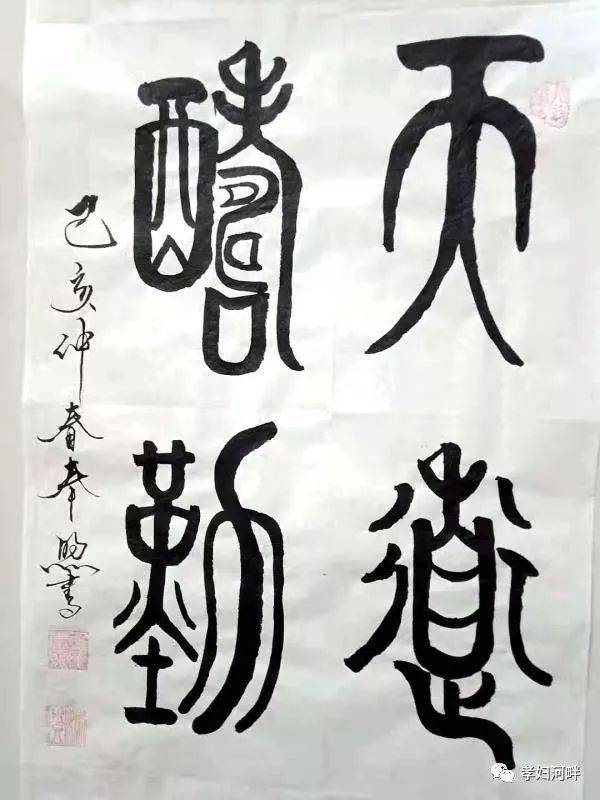 天道
酬勤
己亥仲春 書
孝妇河畔